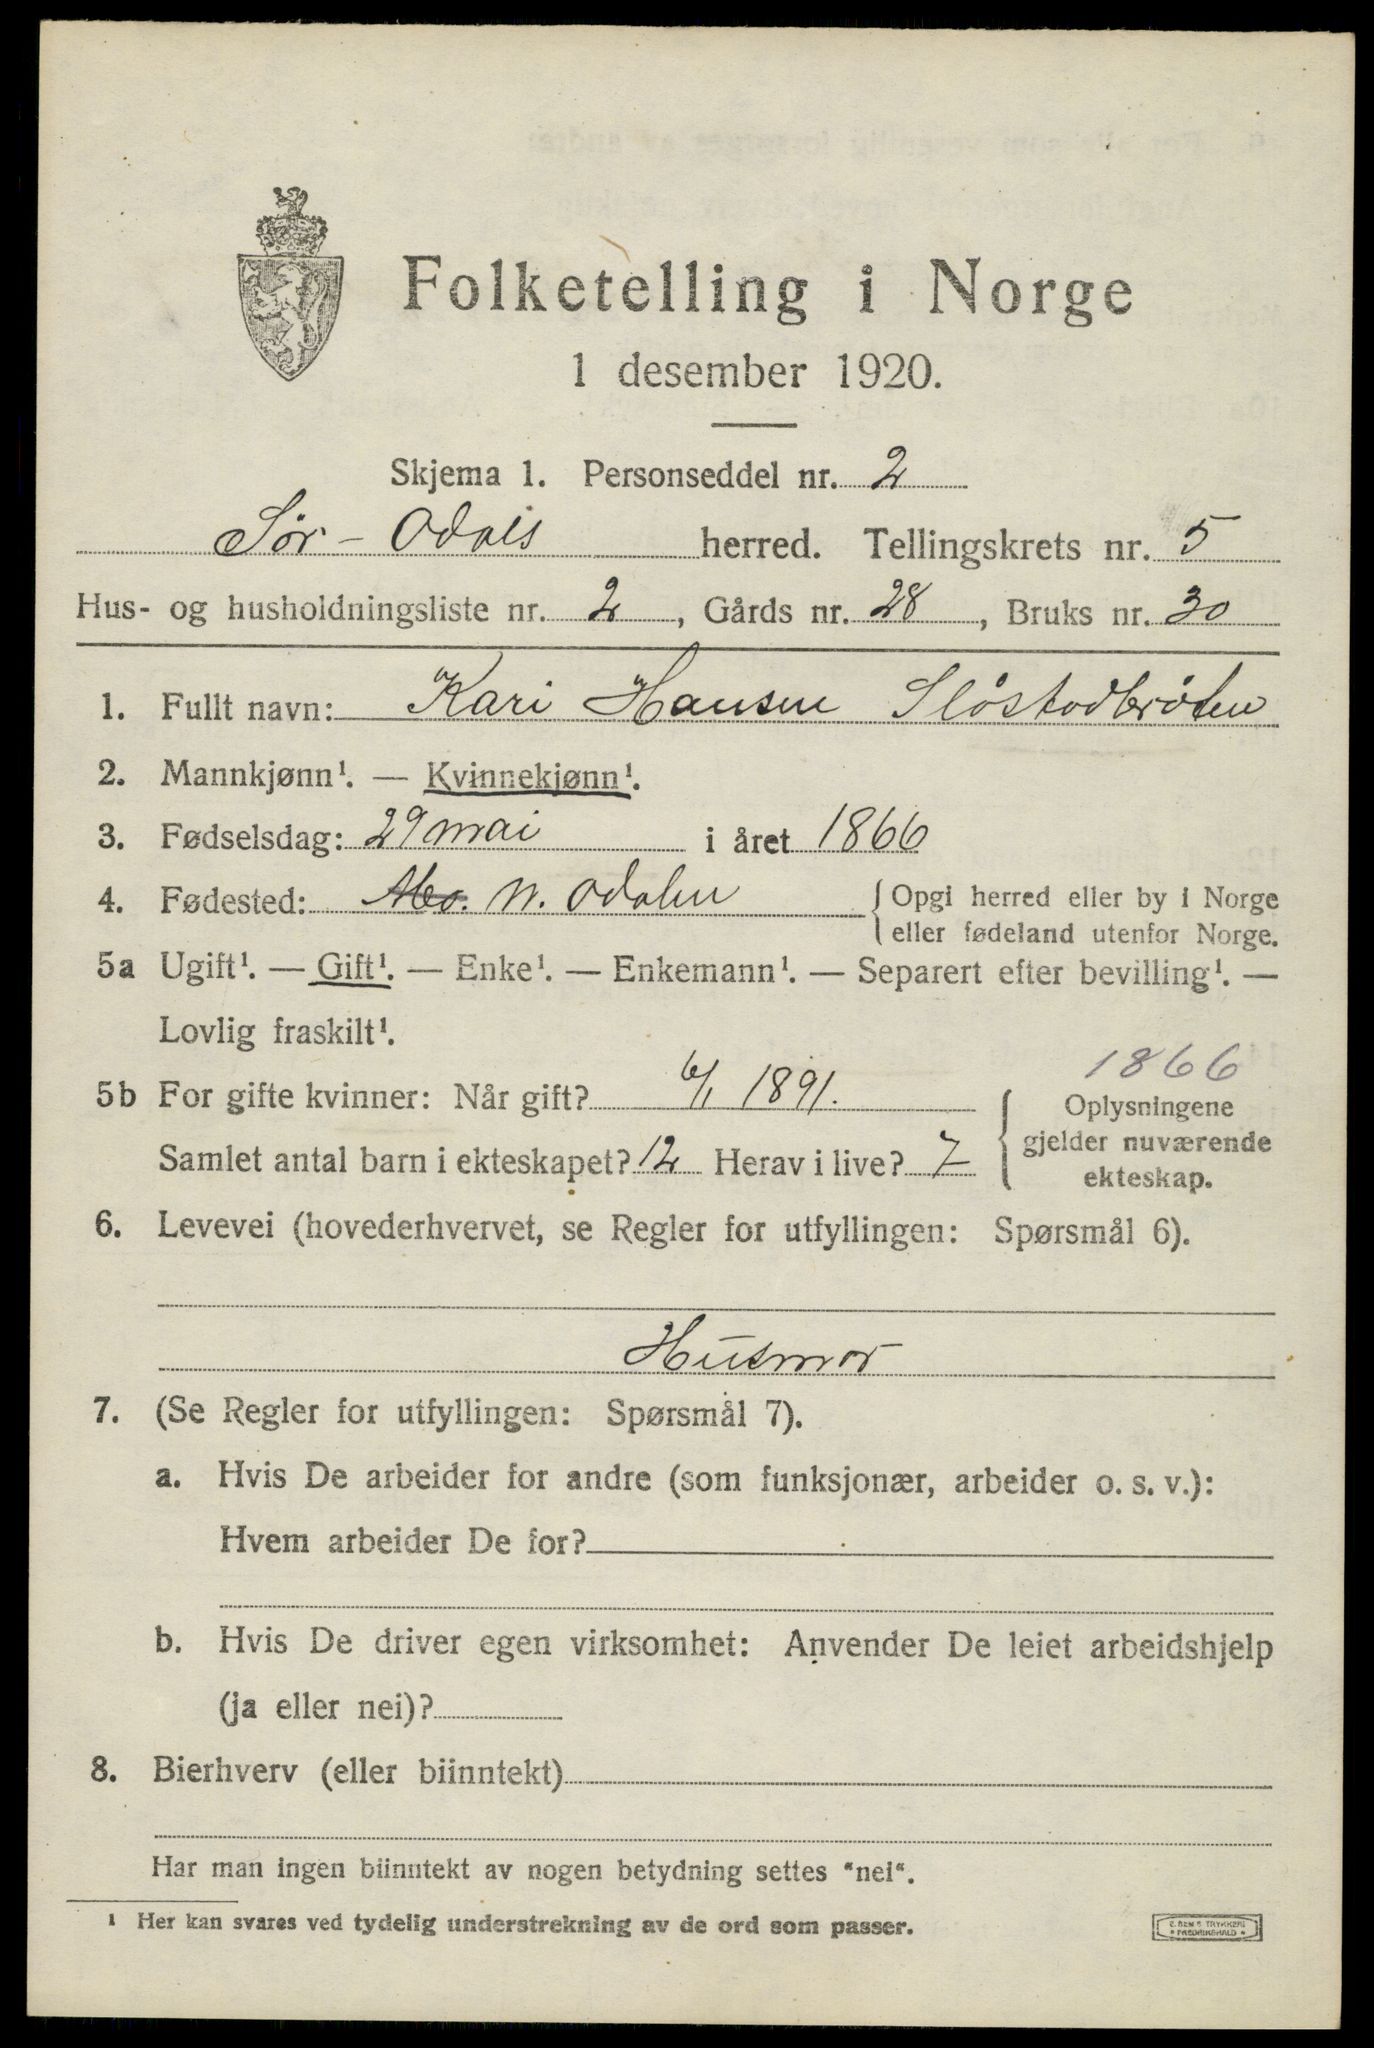 Folketelling i Norge
1 desember 1920.
Skjema 1. Personseddel nr. 2
Sør-Odals herred. Tellingskrets nr. 5
Hus- og husholdningsliste nr. 2, Gårds nr. 28, Bruks nr. 30
1. Fullt navn: Kari Hansen Slåstadbråten
2. Mannkjønn¹. — Kvinnekjønn¹.
3. Fødselsdag: 29 mai i året 1866
4. Fødested: Mo. N. Odalen { Opgi herred eller by i Norge
eller fødeland utenfor Norge.
5a Ugift¹. — Gift¹. — Enke¹. — Enkemann¹. — Separert efter bevilling¹. —
Lovlig fraskilt¹.
1866
5b For gifte kvinner: Når gift? 6/1 1891. { Oplysningene
gjelder nuværende
Samlet antal barn i ekteskapet? 12 Herav i live? 7
ekteskap.
6. Levevei (hovederhvervet, se Regler for utfyllingen: Spørsmål 6).
Husmor
7. (Se Regler for utfyllingen: Spørsmål 7).
a. Hvis De arbeider for andre (som funksjonær, arbeider o. s. v.):
Hvem arbeider De for?
b. Hvis De driver egen virksomhet: Anvender De leiet arbeidshjelp
(ja eller nei)?
8. Bierhverv (eller biinntekt)
Har man ingen biinntekt av nogen betydning settes "nei".
¹ Her kan svares ved tydelig understrekning av de ord som passer.